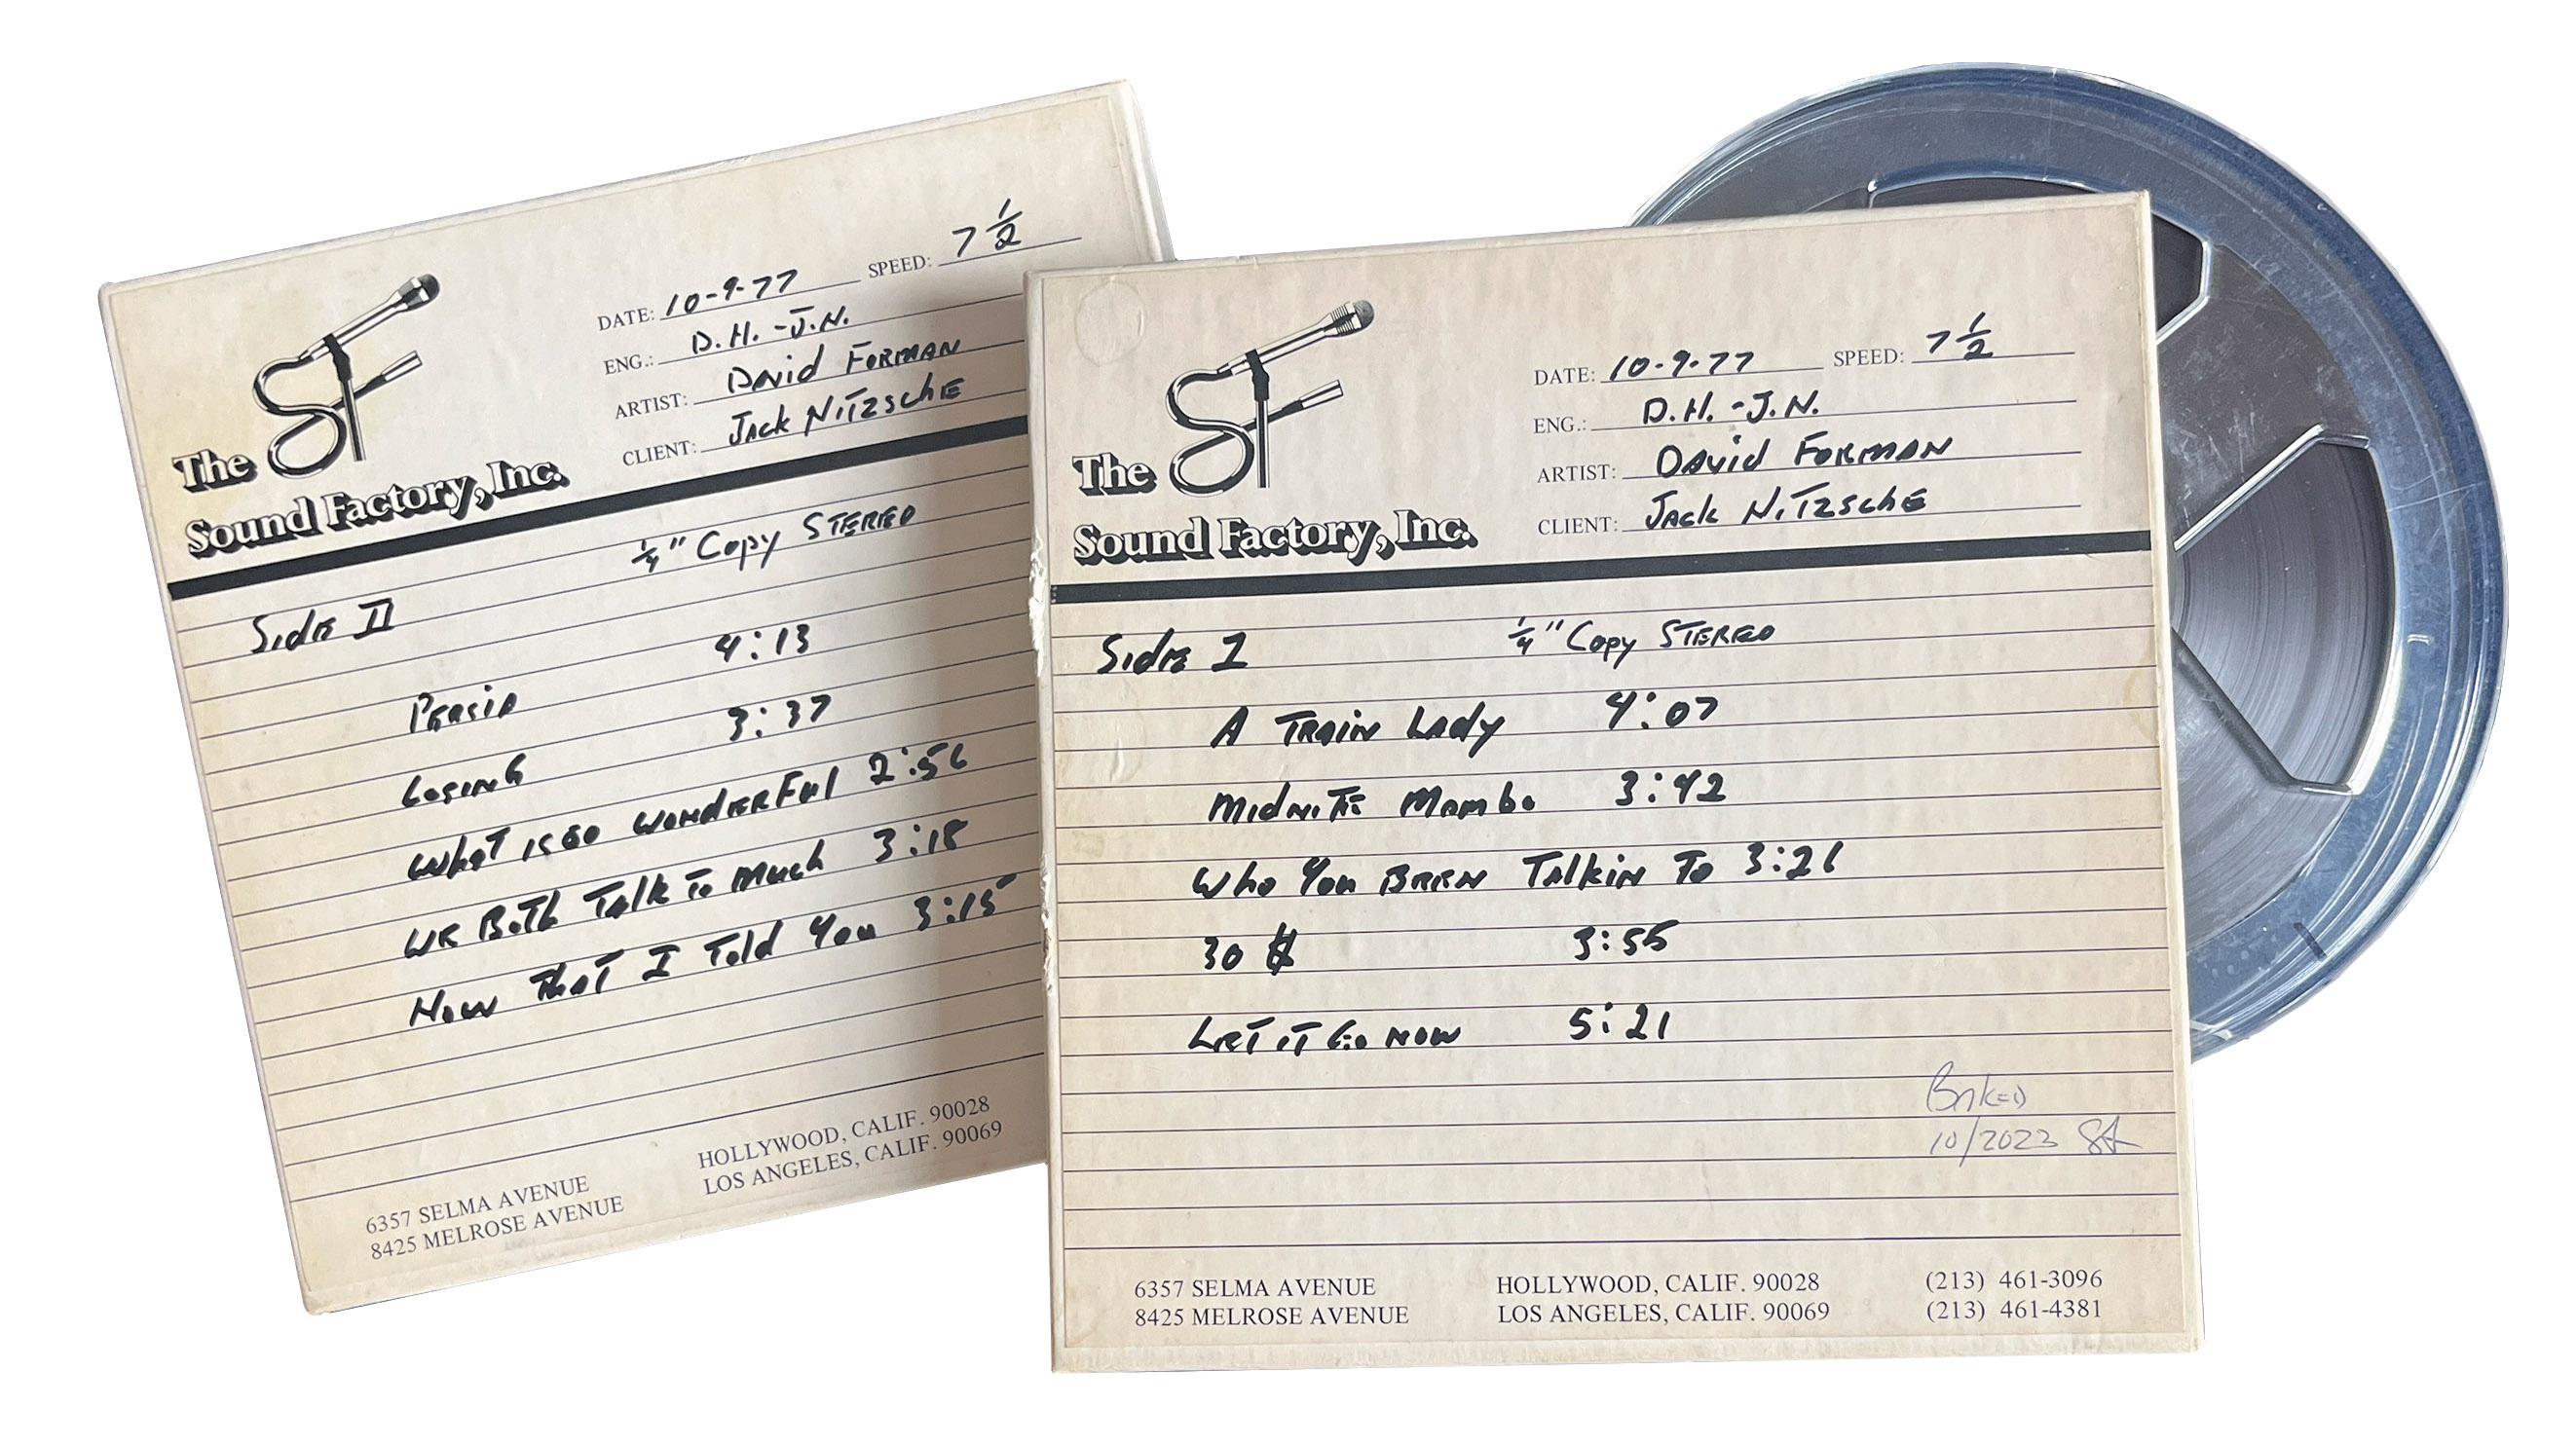 DATE: 10-9-77 SPEED: 7 1/2
ENG.: D.H. - J.N.
ARTIST: David Forman
CLIENT: Jack Nitzsche
The SF
Sound Factory, Inc.
1/4" Copy STEREO
Side II
Persia 4:13
Losing 3:37
What is so wonderful 2:56
We Both Talk To Much 3:18
Now That I Told You 3:15
6357 SELMA AVENUE HOLLYWOOD, CALIF. 90028
8425 MELROSE AVENUE LOS ANGELES, CALIF. 90069
DATE: 10-9-77 SPEED: 7 1/2
ENG.: D.H. - J.N.
ARTIST: David Forman
CLIENT: Jack Nitzsche
The SF
Sound Factory, Inc.
Side I 1/4" Copy STEREO
A Train Lady 4:07
Midnite Mambo 3:42
Who You Been Talkin To 3:21
30 $ 3:55
Let it Go Now 5:21
Baked
10/2023
6357 SELMA AVENUE HOLLYWOOD, CALIF. 90028 (213) 461-3096
8425 MELROSE AVENUE LOS ANGELES, CALIF. 90069 (213) 461-4381